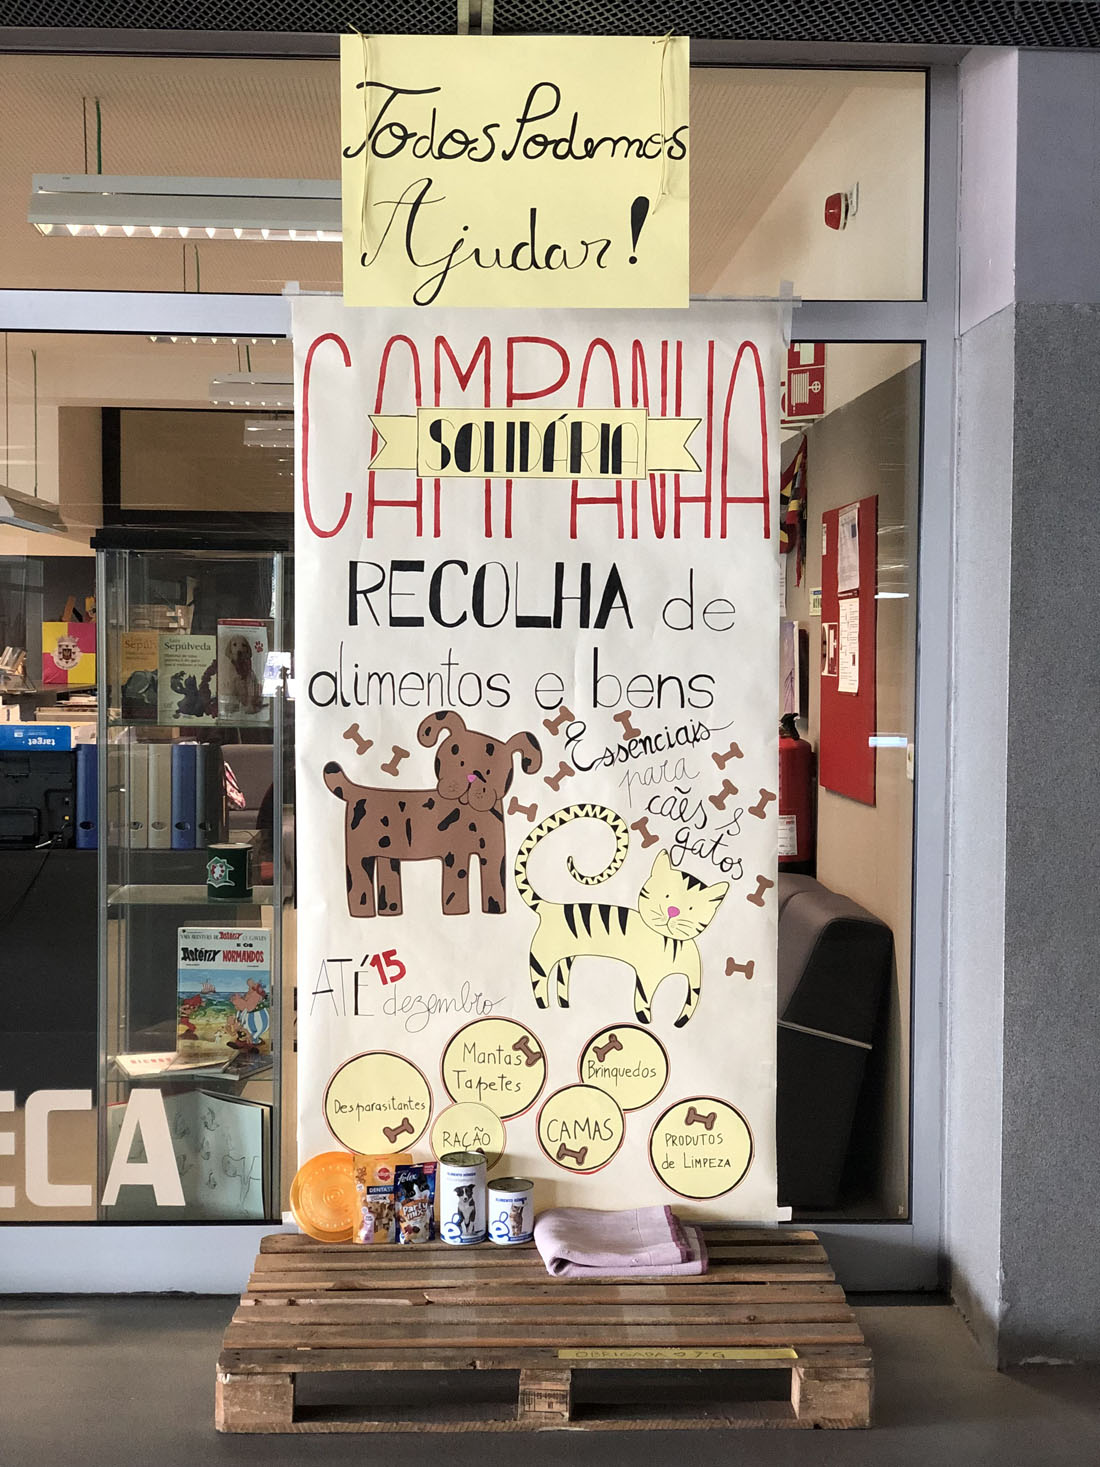 Todos Podemos
Ajudar!
CAMPANHA
SOLIDÁRIA
RECOLHA de
alimentos e bens
Essenciais
para
cães e
gatos
ATÉ 15
dezembro
Mantas
Tapetes
Brinquedos
Desparasitantes
RAÇÃO
CAMAS
PRODUTOS
de LIMPEZA
felix
Party
OBRIGADA
Sepúlveda
target
Astérix
E OS
NORMANDOS
ECA